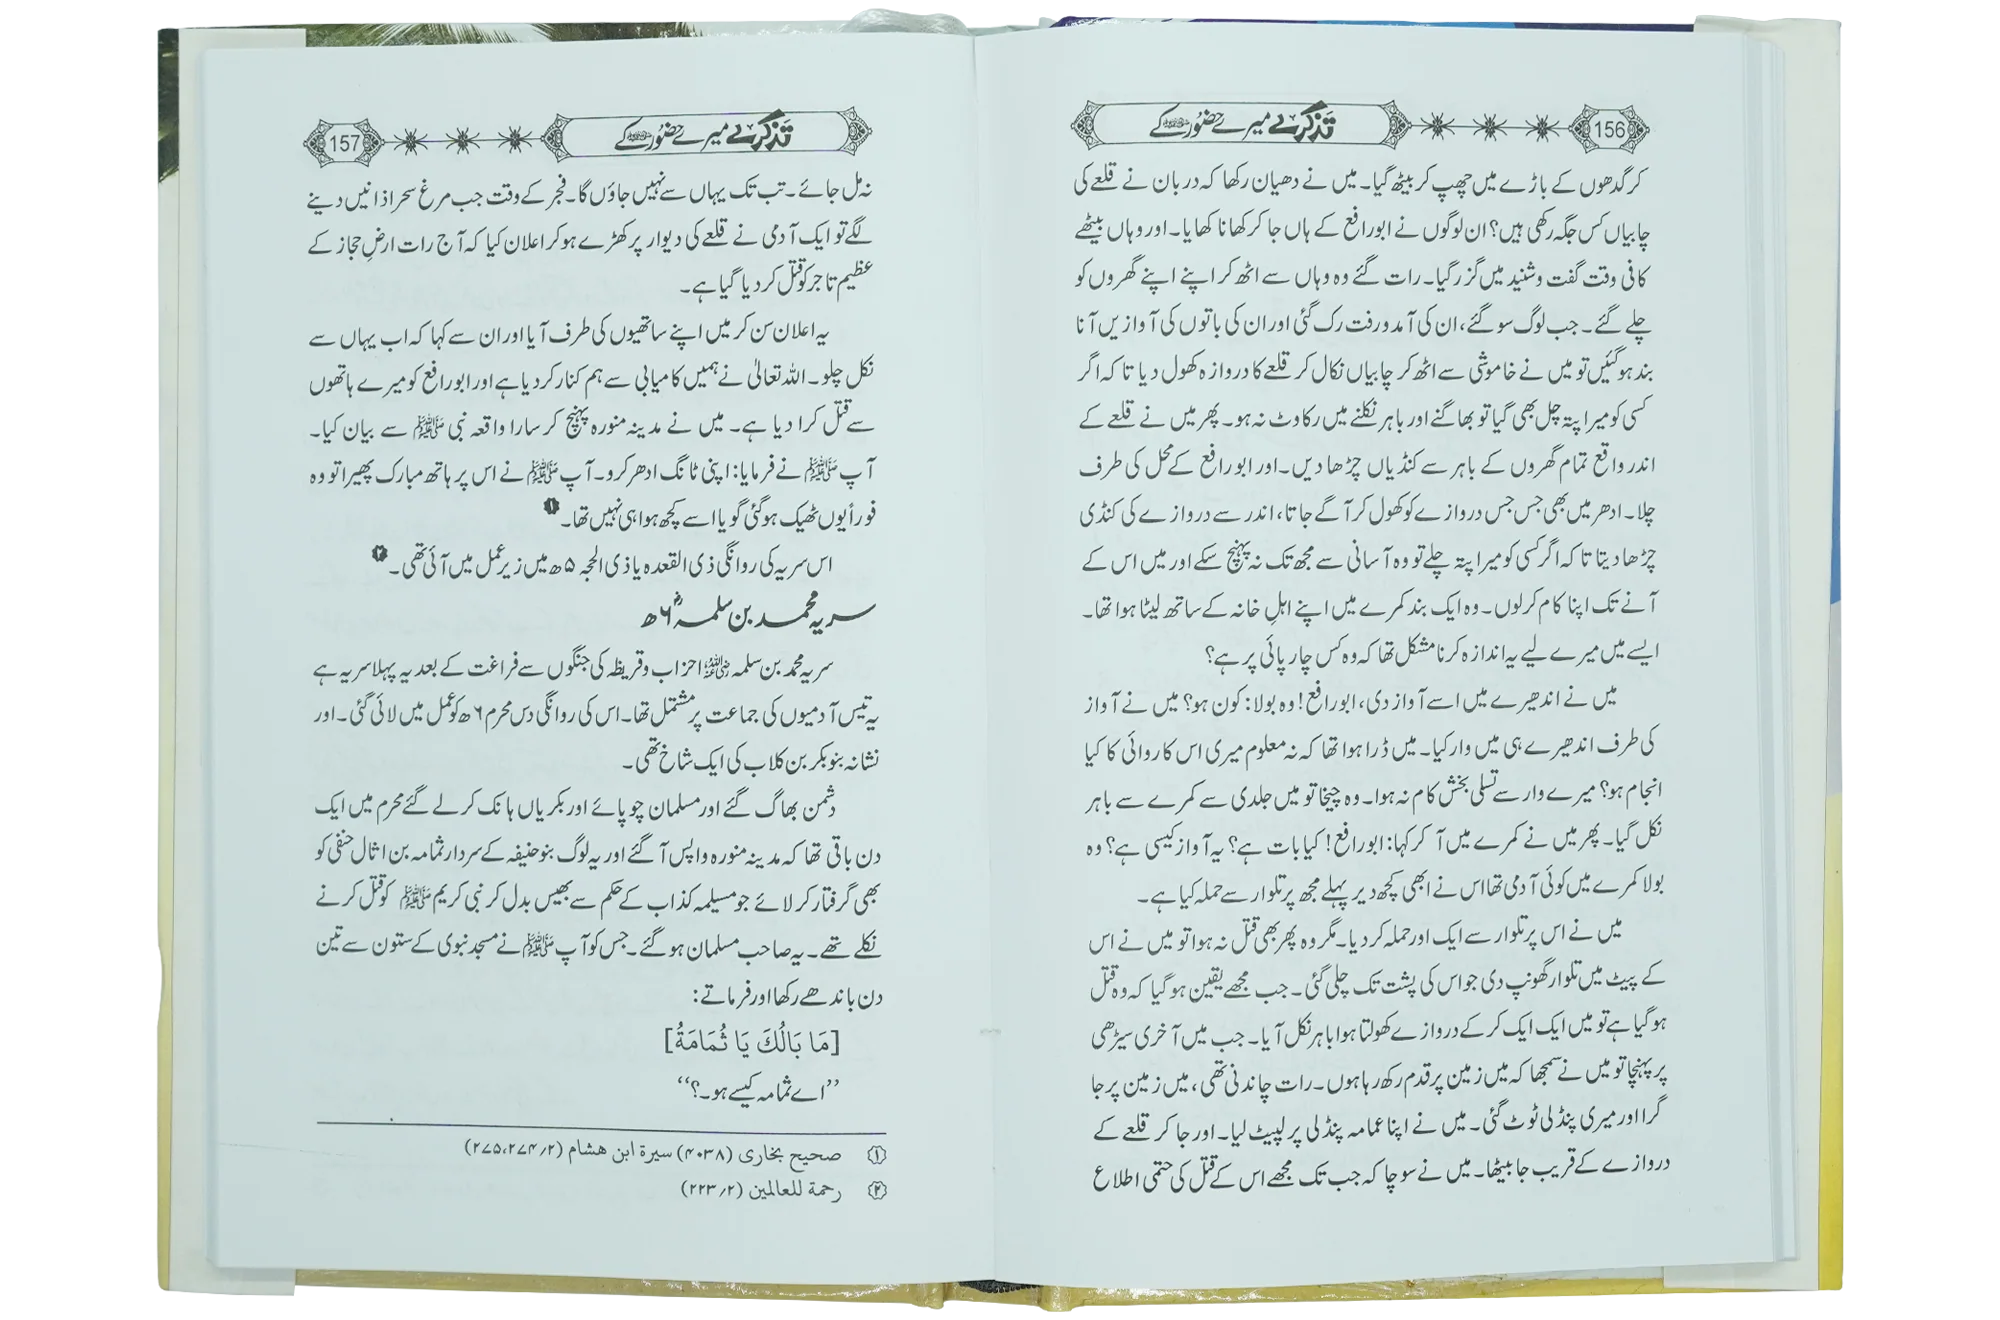 156
تذکرے میرے حضور ﷺ کے
کر گدھوں کے باڑے میں چھپ کر بیٹھ گیا۔ میں نے دھیان رکھا کہ دربان نے قلعے کی
چابیاں کس جگہ رکھی ہیں؟ ان لوگوں نے ابورافع کے ہاں جا کر کھانا کھایا۔ اور وہاں بیٹھے
کافی وقت گفت و شنید میں گزر گیا۔ رات گئے وہ وہاں سے اٹھ کر اپنے اپنے گھروں کو
چلے گئے۔ جب لوگ سو گئے، ان کی آمدورفت رک گئی اور ان کی باتوں کی آوازیں آنا
بند ہو گئیں تو میں نے خاموشی سے اٹھ کر چابیاں نکال کر قلعے کا دروازہ کھول دیا تا کہ اگر
کسی کو میرا پتہ چل بھی گیا تو بھاگنے اور باہر نکلنے میں رکاوٹ نہ ہو۔ پھر میں نے قلعے کے
اندر واقع تمام گھروں کے باہر سے کنڈیاں چڑھا دیں۔ اور ابو رافع کے محل کی طرف
چلا۔ ادھر میں بھی جس جس دروازے کو کھول کر آگے جاتا، اندر سے دروازے کی کنڈی
چڑھا دیتا تا کہ اگر کسی کو میرا پتہ چلے تو وہ آسانی سے مجھ تک نہ پہنچ سکے اور میں اس کے
آنے تک اپنا کام کر لوں۔ وہ ایک بند کمرے میں اپنے اہلِ خانہ کے ساتھ لیٹا ہوا تھا۔
ایسے میں میرے لیے یہ اندازہ کرنا مشکل تھا کہ وہ کس چارپائی پر ہے؟
میں نے اندھیرے میں اسے آواز دی، ابورافع! وہ بولا: کون ہو؟ میں نے آواز
کی طرف اندھیرے ہی میں وار کیا۔ میں ڈرا ہوا تھا کہ نہ معلوم میری اس کاروائی کا کیا
انجام ہو؟ میرے وار سے تسلی بخش کام نہ ہوا۔ وہ چیخا تو میں جلدی سے کمرے سے باہر
نکل گیا۔ پھر میں نے کمرے میں آ کر کہا: ابورافع! کیا بات ہے؟ یہ آواز کیسی ہے؟ وہ
بولا کمرے میں کوئی آدمی تھا اس نے ابھی کچھ دیر پہلے مجھ پر تلوار سے حملہ کیا ہے۔
میں نے اس پر تلوار سے ایک اور حملہ کر دیا۔ مگر وہ پھر بھی قتل نہ ہوا تو میں نے اس
کے پیٹ میں تلوار گھونپ دی جو اس کی پشت تک چلی گئی۔ جب مجھے یقین ہو گیا کہ وہ قتل
ہو گیا ہے تو میں ایک ایک کر کے دروازے کھولتا ہوا باہر نکل آیا۔ جب میں آخری سیڑھی
پر پہنچا تو میں نے سمجھا کہ میں زمین پر قدم رکھ رہا ہوں۔ رات چاندنی تھی، میں زمین پر جا
گرا اور میری پنڈلی ٹوٹ گئی۔ میں نے اپنا عمامہ پنڈلی پر لپیٹ لیا۔ اور جا کر قلعے کے
دروازے کے قریب جا بیٹھا۔ میں نے سوچا کہ جب تک مجھے اس کے قتل کی حتمی اطلاع
تذکرے میرے حضور ﷺ کے
157
نہ مل جائے۔ تب تک یہاں سے نہیں جاؤں گا۔ فجر کے وقت جب مرغ سحر اذانیں دینے
لگے تو ایک آدمی نے قلعے کی دیوار پر کھڑے ہو کر اعلان کیا کہ آج رات ارضِ حجاز کے
عظیم تاجر کو قتل کر دیا گیا ہے۔
یہ اعلان سن کر میں اپنے ساتھیوں کی طرف آیا اور ان سے کہا کہ اب یہاں سے
نکل چلو۔ اللہ تعالیٰ نے ہمیں کامیابی سے ہم کنار کر دیا ہے اور ابورافع کو میرے ہاتھوں
سے قتل کرا دیا ہے۔ میں نے مدینہ منورہ پہنچ کر سارا واقعہ نبی ﷺ سے بیان کیا۔
آپ ﷺ نے فرمایا: اپنی ٹانگ ادھر کرو۔ آپ ﷺ نے اس پر ہاتھ مبارک پھیرا تو وہ
فوراً یوں ٹھیک ہو گئی گویا اسے کچھ ہوا ہی نہیں تھا۔ ۱
اس سریہ کی روانگی ذی القعدہ یا ذی الحجہ ۵ھ میں زیر عمل میں آئی تھی۔ ۲
سریہ محمد بن سلمہؓ ۶ھ
سریہ محمد بن سلمہ رضی اللہ عنہ احزاب و قریظہ کی جنگوں سے فراغت کے بعد یہ پہلا سریہ ہے
یہ تیس آدمیوں کی جماعت پر مشتمل تھا۔ اس کی روانگی دس محرم ۶ھ کو عمل میں لائی گئی۔ اور
نشانہ بنو بکر بن کلاب کی ایک شاخ تھی۔
دشمن بھاگ گئے اور مسلمان چوپائے اور بکریاں ہانک کر لے گئے محرم میں ایک
دن باقی تھا کہ مدینہ منورہ واپس آ گئے اور یہ لوگ بنو حنیفہ کے سردار ثمامہ بن اثال حنفی کو
بھی گرفتار کر لائے جو مسیلمہ کذاب کے حکم سے بھیس بدل کر نبی کریم ﷺ کو قتل کرنے
نکلے تھے۔ یہ صاحب مسلمان ہو گئے۔ جس کو آپ ﷺ نے مسجد نبوی کے ستون سے تین
دن باندھے رکھا اور فرماتے:
[مَا بَالُكَ يَا ثُمَامَةُ]
’’اے ثمامہ کیسے ہو۔؟‘‘
۱ صحیح بخاری (۴۰۳۸) سیرة ابن هشام (۲/۲۷۴،۲۷۵)
۲ رحمة للعالمين (۲/۲۲۳)